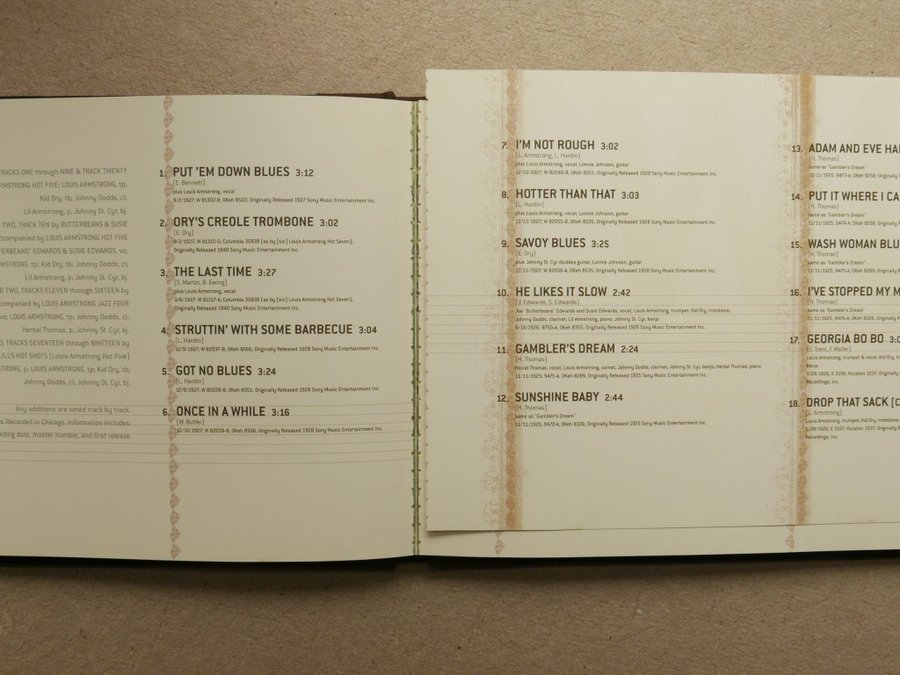 TRACKS ONE through NINE & TRACK TWENTY
ARMSTRONG HOT FIVE; LOUIS ARMSTRONG, tp;
Kid Ory, tb; Johnny Dodds, cl;
Lil Armstrong, p; Johnny St. Cyr, bj.
TWO, TRACK TEN by BUTTERBEANS & SUSIE
accompanied by LOUIS ARMSTRONG HOT FIVE
"BUTTERBEANS" EDWARDS & SUSIE EDWARDS, vo;
ARMSTRONG, tp; Kid Ory, tb; Johnny Dodds, cl;
Lil Armstrong, p; Johnny St. Cyr, bj.
TWO, TRACKS ELEVEN through SIXTEEN by
accompanied by LOUIS ARMSTRONG JAZZ FOUR
vo; LOUIS ARMSTRONG, tp; Johnny Dodds, cl;
Hersal Thomas, p; Johnny St. Cyr, bj.
TRACKS SEVENTEEN through NINETEEN by
LIL'S HOT SHOTS [Louis Armstrong Hot Five]
ARMSTRONG, p; LOUIS ARMSTRONG, tp; Kid Ory, tb;
Johnny Dodds, cl; Johnny St. Cyr, bj.
Any additions are noted track by track.
Recorded in Chicago. Information includes
recording data, master number, and first release
1. PUT 'EM DOWN BLUES 3:12
[E. Bennett]
plus Louis Armstrong, vocal
9/2/1927; W 81302-B; OKeh 8503; Originally Released 1927 Sony Music Entertainment Inc.
2. ORY'S CREOLE TROMBONE 3:02
[E. Ory]
9/2/1927; W 81310-D; Columbia 35838 [as by [sic] Louis Armstrong Hot Seven];
Originally Released 1940 Sony Music Entertainment Inc.
3. THE LAST TIME 3:27
[S. Martin, B. Ewing]
plus Louis Armstrong, vocal
9/6/1927; W 81317-A; Columbia 35838 [as by [sic] Louis Armstrong Hot Seven];
Originally Released 1940 Sony Music Entertainment Inc.
4. STRUTTIN' WITH SOME BARBECUE 3:04
[L. Hardin]
12/9/1927; W 82037-B; OKeh 8566; Originally Released 1928 Sony Music Entertainment Inc.
5. GOT NO BLUES 3:24
[L. Hardin]
12/9/1927; W 82038-B; OKeh 8551; Originally Released 1928 Sony Music Entertainment Inc.
6. ONCE IN A WHILE 3:16
[W. Butler]
12/10/1927; W 82039-B; OKeh 8566; Originally Released 1928 Sony Music Entertainment Inc.
7. I'M NOT ROUGH 3:02
[L. Armstrong, L. Hardin]
plus Louis Armstrong, vocal; Lonnie Johnson, guitar
12/10/1927; W 82040-B; OKeh 8551; Originally Released 1928 Sony Music Entertainment Inc.
8. HOTTER THAN THAT 3:03
[L. Hardin]
plus Louis Armstrong, vocal; Lonnie Johnson, guitar
12/13/1927; W 82055-B; OKeh 8535; Originally Released 1928 Sony Music Entertainment Inc.
9. SAVOY BLUES 3:25
[E. Ory]
plus Johnny St. Cyr doubles guitar; Lonnie Johnson, guitar
12/13/1927; W 82056-A; OKeh 8535; Originally Released 1928 Sony Music Entertainment Inc.
10. HE LIKES IT SLOW 2:42
[J. Edwards, S. Edwards]
Joe "Butterbeans" Edwards and Susie Edwards, vocal; Louis Armstrong, trumpet; Kid Ory, trombone;
Johnny Dodds, clarinet; Lil Armstrong, piano; Johnny St. Cyr, banjo
6/18/1926; 9750-A; OKeh 8355; Originally Released 1926 Sony Music Entertainment Inc.
11. GAMBLER'S DREAM 2:24
[H. Thomas]
Hociel Thomas, vocal; Louis Armstrong, cornet; Johnny Dodds, clarinet; Johnny St. Cyr, banjo; Hersal Thomas, piano
11/11/1925; 9471-A; OKeh 8289; Originally Released 1925 Sony Music Entertainment Inc.
12. SUNSHINE BABY 2:44
[H. Thomas]
same as "Gambler's Dream"
11/11/1925; 9472-A; OKeh 8326; Originally Released 1925 Sony Music Entertainment Inc.
13. ADAM AND EVE HA
[H. Thomas]
same as "Gambler's Dream"
11/11/1925; 9473-A; OKeh 8258;
14. PUT IT WHERE I CA
[H. Thomas]
same as "Gambler's Dream"
11/11/1925; 9474-A; OKeh 8258;
15. WASH WOMAN BLU
[H. Thomas]
same as "Gambler's Dream"
11/11/1925; 9475-A; OKeh 8289;
16. I'VE STOPPED MY M
[H. Thomas]
same as "Gambler's Dream"
17. GEORGIA BO BO 3:0
[J. Trent, F. Waller]
Louis Armstrong, trumpet & vocal; Kid Ory,
5/28/1926; E 3156; Vocalion 1037; Originally
Recordings, Inc.
18. DROP THAT SACK [
[L. Armstrong]
Louis Armstrong, trumpet; Kid Ory, trombone;
5/28/1926; E 3157; Vocalion 1037;
Recordings, Inc.